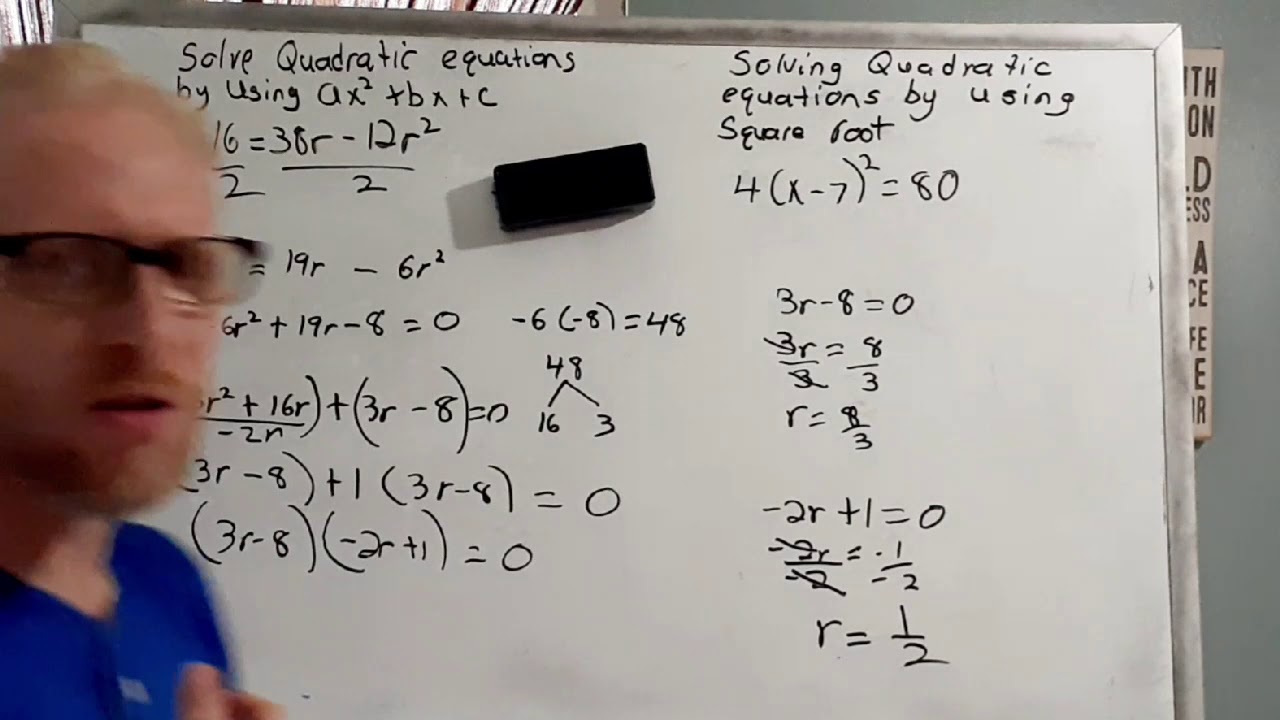 Solve Quadratic equations
by Using ax² + bx + c
16 = 38r - 12r²
2 2
= 19r - 6r²
6r² + 19r - 8 = 0 -6(-8) = 48
48
16 3
r² + 16r) + (3r - 8) = 0
-2r
(3r - 8) + 1 (3r - 8) = 0
(3r - 8)(-2r + 1) = 0
Solving Quadratic
equations by using
Square root
4(x - 7)² = 80
3r - 8 = 0
3r = 8
3 3
r = 8
3
-2r + 1 = 0
-2r = -1
-2 -2
r = 1
2
ITH
ON
LD
ESS
A
CE
FE
E